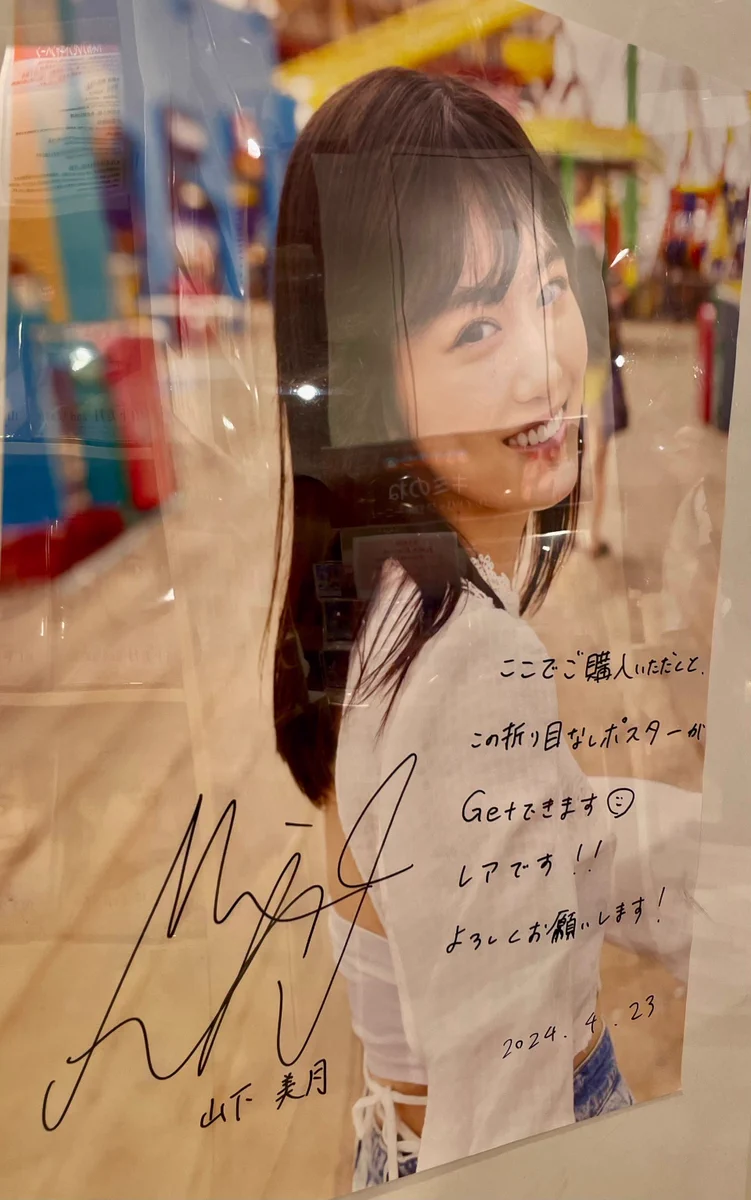 ここでご購入いただくと、
この折り目なしポスターが
Getできます☺
レアです!!
よろしくお願いします!
2024.4.23
山下 美月